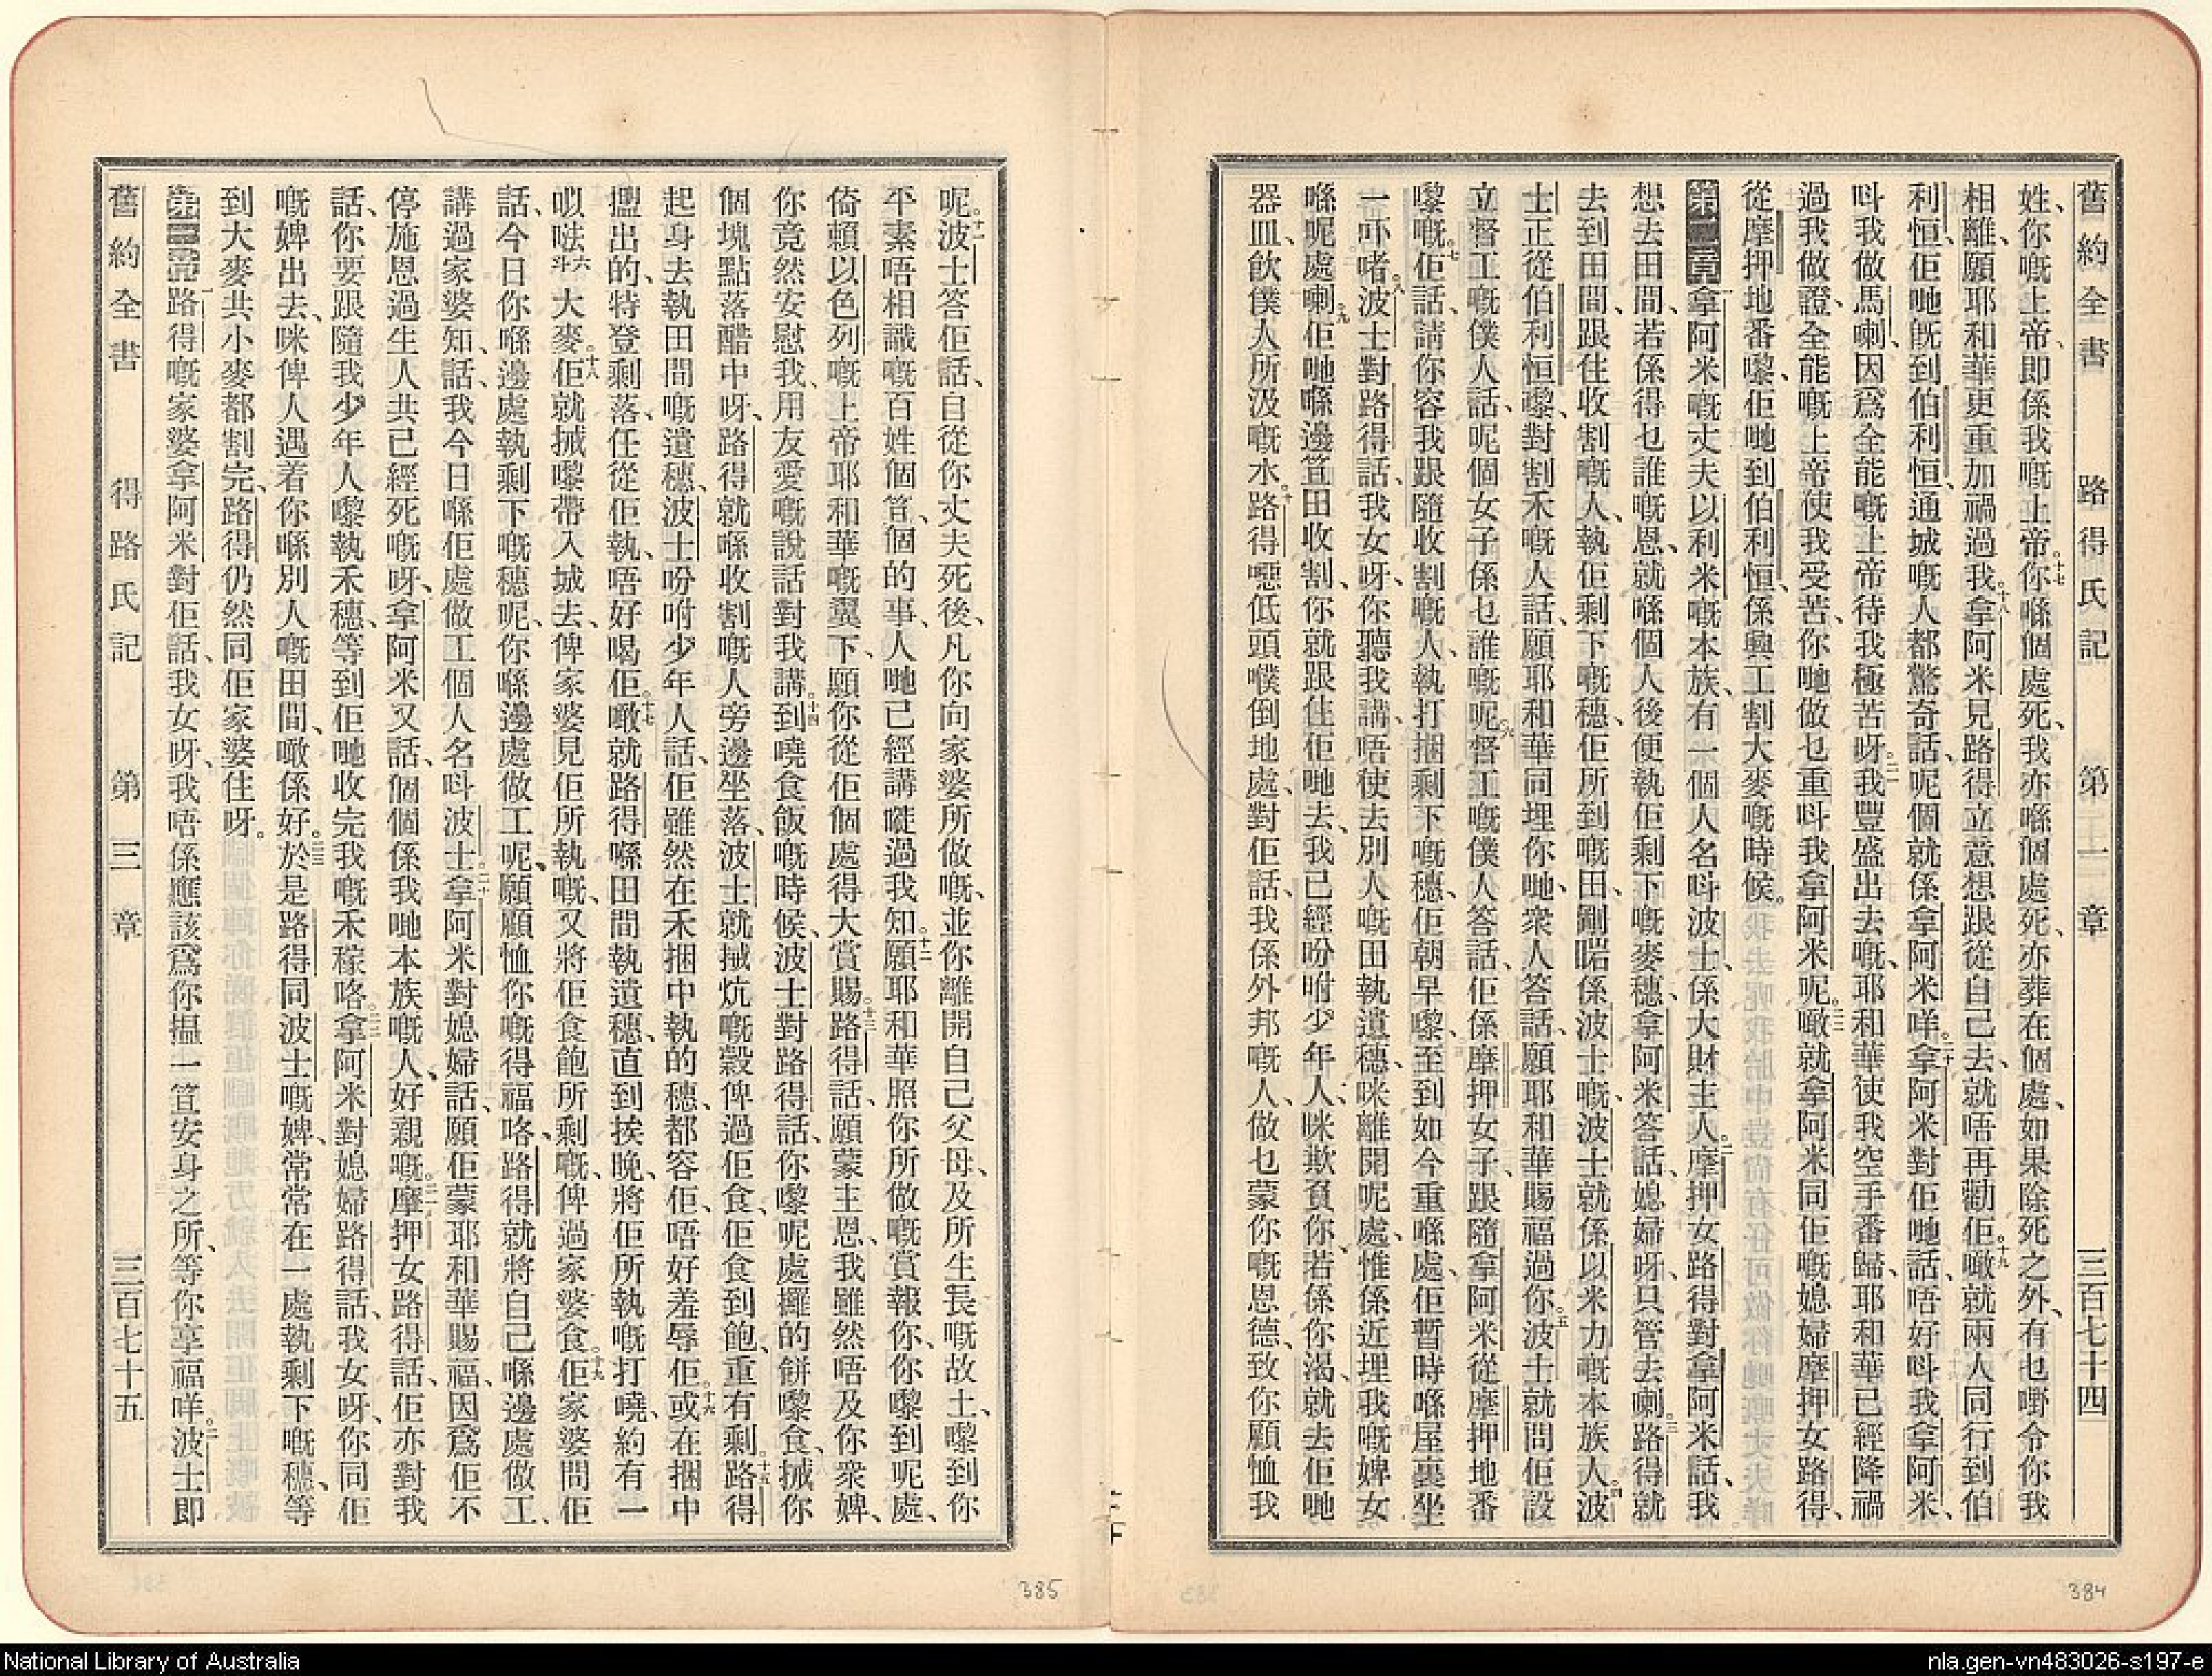 舊約全書 路得氏記 第二章 三百七十四
姓、你嘅上帝、卽係我嘅上帝。十七你喺個處死、我亦喺個處死、亦葬在個處、如果除死之外、有乜嘢令你我
相離、願耶和華更重加禍過我。十八拿阿米見路得立意想跟從自己去、就唔再勸佢。十九噉就兩人同行到伯
利恒、佢哋旣到伯利恒、通城嘅人都驚奇話、呢個就係拿阿米咩。二十拿阿米對佢哋話、唔好呌我拿阿米、
呌我做馬喇、因爲全能嘅上帝待我極苦呀。二一我豐盛出去嘅、耶和華使我空手番歸、耶和華已經降禍
過我做證、全能嘅上帝使我受苦、你哋做乜重呌我拿阿米呢。二二噉就拿阿米同佢嘅媳婦摩押女路得、
從摩押地番嚟、佢哋到伯利恒、係興工割大麥嘅時候。
第二章一拿阿米嘅丈夫以利米嘅本族、有一個人名呌波士、係大財主人。二摩押女路得對拿阿米話、我
想去田間、若係得乜誰嘅恩、就喺個人後便執佢剩下嘅麥穗、拿阿米答話、媳婦呀、只管去喇。三路得就
去到田間、跟住收割嘅人、執佢剩下嘅穗、佢所到嘅田、剛啱係波士嘅、波士就係以米力嘅本族人。四波
士正從伯利恒嚟、對割禾嘅人話、願耶和華同埋你哋、衆人答話、願耶和華賜福過你。五波士就問佢設
立督工嘅僕人話、呢個女子係乜誰嘅呢。六督工嘅僕人答話、佢係摩押女子、跟隨拿阿米從摩押地番
嚟嘅。七佢話、請你容我跟隨收割嘅人、執打捆剩下嘅穗、佢朝早嚟、至到如今重喺處、佢暫時喺屋裏坐
一吓啫。八波士對路得話、我女呀、你聽我講、唔使去別人嘅田執遺穗、咪離開呢處、惟係近埋我嘅婢女
喺呢處喇。九佢哋喺邊笪田收割、你就跟住佢哋去、我已經吩咐少年人、咪欺負你、若係你渴、就去佢哋
器皿、飮僕人所汲嘅水。十路得嗯低頭噗倒地處、對佢話、我係外邦嘅人、做乜蒙你嘅恩德、致你顧恤我
384
呢。十一波士答佢話、自從你丈夫死後、凡你向家婆所做嘅、並你離開自己父母、及所生長嘅故土、嚟到你
平素唔相識嘅百姓個笪、個的事、人哋已經講嚨過我知。十二願耶和華照你所做嘅賞報你、你嚟到呢處、
倚賴以色列嘅上帝耶和華嘅翼下、願你從佢個處得大賞賜。十三路得話、願蒙主恩、我雖然唔及你衆婢、
你竟然安慰我、用友愛嘅說話對我講。十四到嘵食飯嘅時候、波士對路得話、你嚟呢處攞的餅嚟食、搣你
個塊點落醋中呀、路得就喺收割嘅人旁邊坐落、波士就搣炕嘅穀俾過佢食、佢食到飽、重有剩。十五路得
起身去執田間嘅遺穗、波士吩咐少年人話、佢雖然在禾捆中執的穗、都容佢、唔好羞辱佢。十六或在捆中
搵出的、特登剩落、任從佢執、唔好喝佢。十七噉就路得喺田間執遺穗、直到挨晚、將佢所執嘅打嘵、約有一
㕥㗘斗六大麥。十八佢就搣嚟帶入城去、俾家婆見佢所執嘅、又將佢食飽所剩嘅、俾過家婆食。十九佢家婆問佢
話、今日你喺邊處執剩下嘅穗呢、你喺邊處做工呢、願顧恤你嘅得福咯、路得就將自己喺邊處做工、
講過家婆知、話、我今日喺佢處做工個人名呌波士。二十拿阿米對媳婦話、願佢蒙耶和華賜福、因爲佢不
停施恩過生人共已經死嘅呀、拿阿米又話、個個係我哋本族嘅人、好親嘅。二一摩押女路得話、佢亦對我
話、你要跟隨我少年人嚟執禾穗、等到佢哋收完我嘅禾稼咯。二二拿阿米對媳婦路得話、我女呀、你同佢
嘅婢出去、咪俾人遇着你喺別人嘅田間、噉係好。二三於是路得同波士嘅婢、常常在一處執剩下嘅穗、等
到大麥共小麥都割完、路得仍然同佢家婆住呀。
第三章一路得嘅家婆拿阿米對佢話、我女呀、我唔係應該爲你搵一笪安身之所、等你享福咩。二波士卽
舊約全書 得路氏記 第三章 三百七十五
385
National Library of Australia
nla.gen-vn483026-s197-e